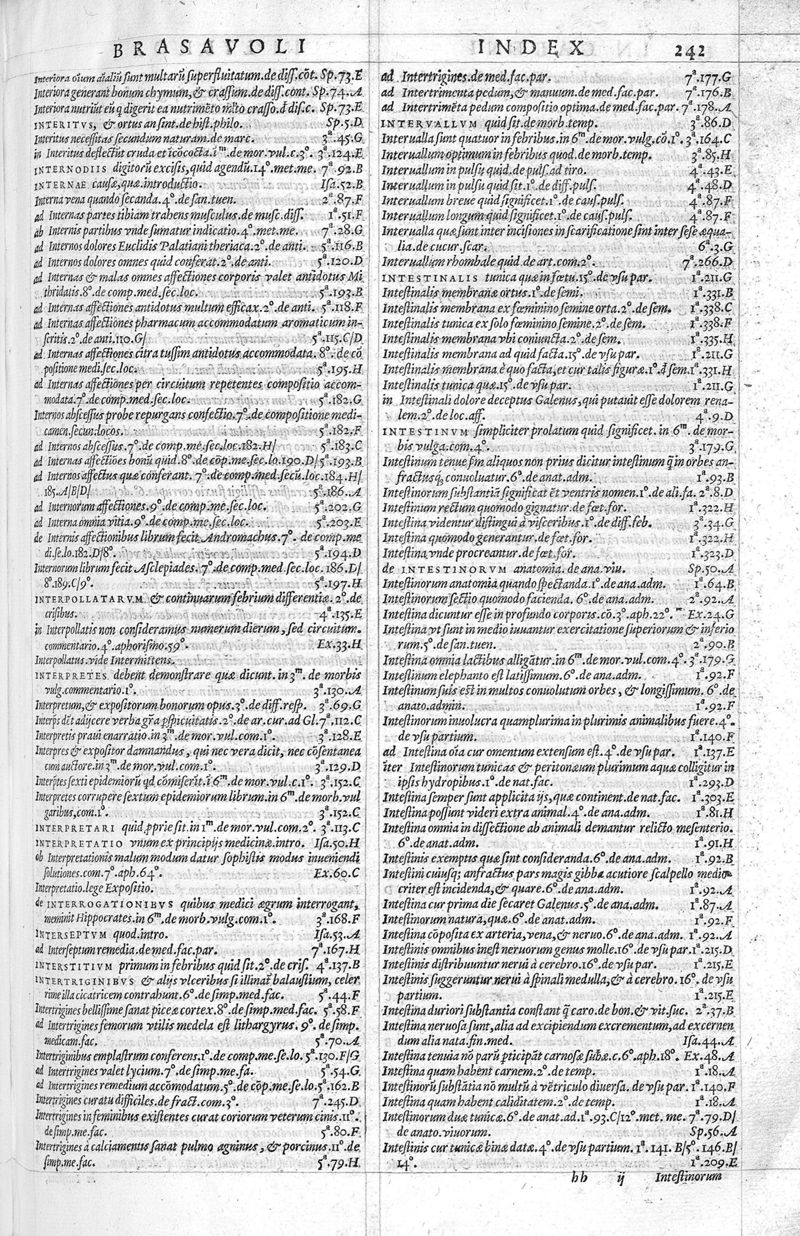 BRASAVOLI INDEX 242
Interiora oĩum aĩaliũ sunt multarũ superfluitatum.de diff.cõt. Sp.73.E
Interiora generant bonum chymum, & crassum.de diff.cont. Sp.74.A
Interiora nutriũt eũ q̃ digerit ea nutrimẽto mĩto crasso.d̃ dis.c. Sp.73.E
INTERITVS, & ortus an sint.de hist.philo. Sp.5.D
Interitus necessitas secundum naturam.de marc. 3ª.45.G
in Interitus deflectũt cruda et ĩcococta.ĩ.m.de mor.vul.c.3º. 3ª.124.E
INTERNODIIS digitorũ excisis, quid agendũ.14º.met.me. 7ª.92.B
INTERNAE causæ, quæ.introductio. Isa.52.B
Interna vena quando secanda.4º.de san.tuen. 2ª.87.F
ad Internas partes tibiam trahens musculus.de musc.diss. 1ª.51.F
ab Internis partibus vnde sumatur indicatio.4º.met.me. 7ª.28.G
ad Internos dolores Euclidis Palatiani theriaca.2º.de anti. 5ª.116.B
ad Internos dolores omnes quid conferat.2º.de anti. 5ª.120.D
ad Internas & malas omnes affectiones corporis valet antidotus Mi
thridatis.8º.de comp.med.sec.loc. 5ª.193.B
ad Internas affectiones antidotus multum efficax.2º.de anti. 5ª.118.F
ad Internas affectiones pharmacum accommodatum aromaticum in-
seritis.2º.de anti.110.G/ 5ª.115.C/D
ad Internas affectiones citra tussim antidotus accommodata. 8º.de cõ
positione medi.sec.loc. 5ª.195.H
ad Internas affectiones per circuitum repetentes compositio accom-
modata.7º.de comp.med.sec.loc. 5ª.182.G
Internos abscessus probe repurgans confectio.7º.de compositione medi-
camen.secun.locos. 5ª.182.F
ad Internos abscessus.7º.de comp.me.sec.loc.182.H/ 5ª.183.C
ad Internas affectiões bonũ quid.8º.de cõp.me.sec.lo.190.D/5ª.193.B
ad Internos affectus quæ conferant. 7º.de comp.med.secũ.loc.184.H/
185.A/B/D/ 5ª.186.A
ad Internorum affectiones.9º.de comp.me.sec.loc. 5ª.202.G
ad Interna omnia vitia.9º.de comp.me.sec.loc. 5ª.203.E
de Internis affectionibus librum fecit Andromachus.7º. de comp.me
di.se.lo.182.D/8º. 5ª.194.D
Interiorum librum fecit Asclepiades. 7º.de comp.med.sec.loc. 186.D/
8º.189.C/9º. 5ª.197.H
INTERPOLLATARVM & continuarum febrium differentiæ. 2º.de
crisibus. 4ª.135.E
in Interpollatis non consideramus numerum dierum, sed circuitum.
commentario.4º.aphorismo.59º. Ex.33.H
Interpollatus.vide Intermittens.
INTERPRETES debent demonstrare quæ dicunt.in 3m.de morbis
vulg.commentario.1º. 3ª.130.A
Interpretum, & expositorum bonorum opus.3º.de diff.resp. 3ª.69.G
Interp̃s dẽt adijcere verba gr̃a p̃spicuitatis.2º.de ar.cur.ad Gl.7ª.112.C
Interpretis praui enarratio.in 3m.de mor.vul.com.1º. 3ª.128.E
Interpres & expositor damnandus, qui nec vera dicit, nec cõsentanea
cum auctore.in 3m.de mor.vul.com.1º. 3ª.129.D
Interp̃tes sexti epidemiorũ qd cõmiserit.ĩ 6m.de mor.vul.c.1º. 3ª.152.C
Interpretes corrupere sextum epidemiorum librum.in 6m.de morb.vul
garibus,com.1º. 3ª.152.C
INTERPRETARI quid p̃prie sit.in 1m.de mor.vul.com.2º. 3ª.113.C
INTERPRETATIO vnum ex principijs medicinæ.intro. Isa.50.H
ob Interpretationis malum modum datur sophistis modus inueniendi
solutiones.com.7º.aph.64º. Ex.60.C
Interpretatio.lege Expositio.
de INTERROGATIONIBVS quibus medici ægrum interrogant,
meminit Hippocrates.in 6m.de morb.vulg.com.1º. 3ª.168.F
INTERSEPTVM quod.intro. Isa.53.A
ad Interseptum remedia.de med.fac.par. 7ª.167.H
INTERSTITIVM primum in febribus quid sit.2º.de cris. 4ª.137.B
INTERTRIGINIBVS & alijs vlceribus si illinat̃ balaustium, celer
rime illa cicatricem contrahunt.6º.de simp.med.fac. 5ª.44.F
Intertrigines bellissime sanat piceæ cortex.8º.de simp.med.fac. 5ª.58.F
ad Intertrigines femorum vtilis medela est lithargyrus. 9º.de simp.
medicam.fac. 5ª.70.A
Intertriginibus emplastrum conferens.1º.de comp.me.se.lo.5ª.130.F/G
ad Intertrigines valet lycium.7º.de simp.me.fa. 5ª.54.G
ad Intertrigines remedium accõmodatum.5º.de cõp.me.se.lo.5ª.162.B
Intertrigines curatu difficiles.de fract.com.3º. 7ª.245.D
Intertrigines in feminibus existentes curat coriorum veterum cinis.11º.
de simp.me.fac. 5ª.80.F
Intertrigines à calciamentis sanat pulmo agninus, & porcinus.11º.de
simp.me.fac. 5ª.79.H
ad Intertrigines.de med.fac.par. 7ª.177.G
ad Intertrimenta pedum, & manuum.de med.fac.par. 7ª.176.B
ad Intertrimẽta pedum compositio optima.de med.fac.par. 7ª.178.A
INTERVALLVM quid sit.de morb.temp. 3ª.86.D
Interualla sunt quatuor in febribus.in 6m.de mor.vulg.cõ.1º. 3ª.164.C
Interuallum optimum in febribus quod.de morb.temp. 3ª.85.H
Interuallum in pulsu quid.de puls.ad tiro. 4ª.43.E
Interuallum in pulsu quid sit.1º.de diff.puls. 4ª.48.D
Interuallum breue quid significet.1º.de caus.puls. 4ª.87.F
Interuallum longum quid significet.1º.de caus.puls. 4ª.87.F
Interualla quæ sunt inter incisiones in scarificatione sint inter sese æqua-
lia.de cucur.scar. 6ª.3.G
Interuallum rhombale quid.de art.com.2º. 7ª.266.D
INTESTINALIS tunica quæ in fœtu.15º.de vsu par. 1ª.211.G
Intestinalis membranæ ortus.1º.de semi. 1ª.331.B
Intestinalis membrana ex fœminino semine orta.2º.de sem. 1ª.338.C
Intestinalis tunica ex solo fœminino semine.2º.de sem. 1ª.338.F
Intestinalis membrana vbi coniuncta.2º.de sem. 1ª.335.H
Intestinalis membrana ad quid facta.15º.de vsu par. 1ª.211.G
Intestinalis membrana è quo facta, et cur talis figuræ.1º.d̃ sem.1ª.331.H
Intestinalis tunica quæ.15º.de vsu par. 1ª.211.G
in Intestinali dolore deceptus Galenus, qui putauit esse dolorem rena-
lem.2º.de loc.aff. 4ª.9.D
INTESTINVM simpliciter prolatum quid significet.in 6m.de mor-
bis vulga.com.4º. 3ª.179.G
Intestinum tenue p̃m aliquos non prius dicitur intestinum q̃ in orbes an-
fractusq; conuoluatur.6º.de anat.adm. 1ª.93.B
Intestinorum substantiã significat et ventris nomen.1º.de ali.fa. 2ª.8.D
Intestinum rectum quomodo gignatur.de fœt.for. 1ª.322.H
Intestina videntur distingui à visceribus.1º.de diff.feb. 3ª.34.G
Intestina quomodo generantur.de fœt.for. 1ª.322.H
Intestina vnde procreantur.de fœt.for. 1ª.323.D
de INTESTINORVM anatomia.de ana.viu. Sp.50.A
Intestinorum anatomia quando spectanda.1º.de ana.adm. 1ª.64.B
Intestinorum sectio quomodo facienda. 6º.de ana.adm. 2ª.92.A
Intestina dicuntur esse in profundo corporis.cõ.3º.aph.22º. Ex.24.G
Intestina vt sunt in medio iuuantur exercitatione superiorum & inferio
rum.5º.de san.tuen. 2ª.90.B
Intestina omnia lactibus alligãtur.in 6m.de mor.vul.com.4º. 3ª.179.G
Intestinum elephanto est latissimum.6º.de ana.adm. 1ª.92.F
Intestinum suis est in multos conuolutum orbes, & longissimum. 6º.de
anato.admin. 1ª.92.F
Intestinorum inuolucra quamplurima in plurimis animalibus fuere.4º.
de vsu partium. 1ª.140.F
ad Intestina oĩa cur omentum extensum est.4º.de vsu par. 1ª.137.E
ĩter Intestinorum tunicas & peritonæum plurimum aquæ colligitur in
ipsis hydropibus.1º.de nat.fac. 1ª.293.D
Intestina semper sunt applicita ijs, quæ continent.de nat.fac. 1ª.303.E
Intestina possunt videri extra animal.4º.de ana.adm. 1ª.81.H
Intestina omnia in dissectione ab animali demantur relicto mesenterio.
6º.de anat.adm. 1ª.91.H
Intestinis exemptis quæ sint consideranda.6º.de ana.adm. 1ª.92.B
Intestini cuiusq; anfractus pars magis gibba acutiore scalpello medio
criter est incidenda, & quare.6º.de ana.adm. 1ª.92.A
Intestina cur prima die secaret Galenus.5º.de ana.adm. 1ª.87.A
Intestinorum natura, quæ.6º.de anat.adm. 1ª.92.F
Intestina cõposita ex arteria, vena, & neruo.6º.de ana.adm. 1ª.92.A
Intestinis omnibus inest neruorum genus molle.16º.de vsu par.1ª.215.D
Intestinis distribuuntur nerui à cerebro.16º.de vsu par. 1ª.215.E
Intestinis suggeruntur nerui à spinali medulla, & à cerebro. 16º.de vsu
partium. 1ª.215.E
Intestina duriori substantia constant q̃ caro.de bon.& vit.suc. 2ª.37.B
Intestina neruosa sunt, alia ad excipiendum excrementum, ad excernen
dum alia nata.fin.med. Isa.44.A
Intestina tenuia nõ parũ p̃ticipãt carnosæ sub̃æ.c.6º.aph.18º. Ex.48.A
Intestina quam habent carnem.2º.de temp. 1ª.18.A
Intestinorũ substãtia nõ multũ à vẽtriculo diuersa. de vsu par. 1ª.140.F
Intestina quam habent caliditatem.2º.de temp. 1ª.18.A
Intestinorum duæ tunicæ.6º.de anat.ad.1ª.93.C/12º.met. me. 7ª.79.D/
de anato.viuorum. Sp.56.A
Intestinis cur tunicæ binæ datæ.4º.de vsu partium. 1ª. 141. B/5º. 146.B/
14º. 1ª.209.E
hh ij Intestinorum